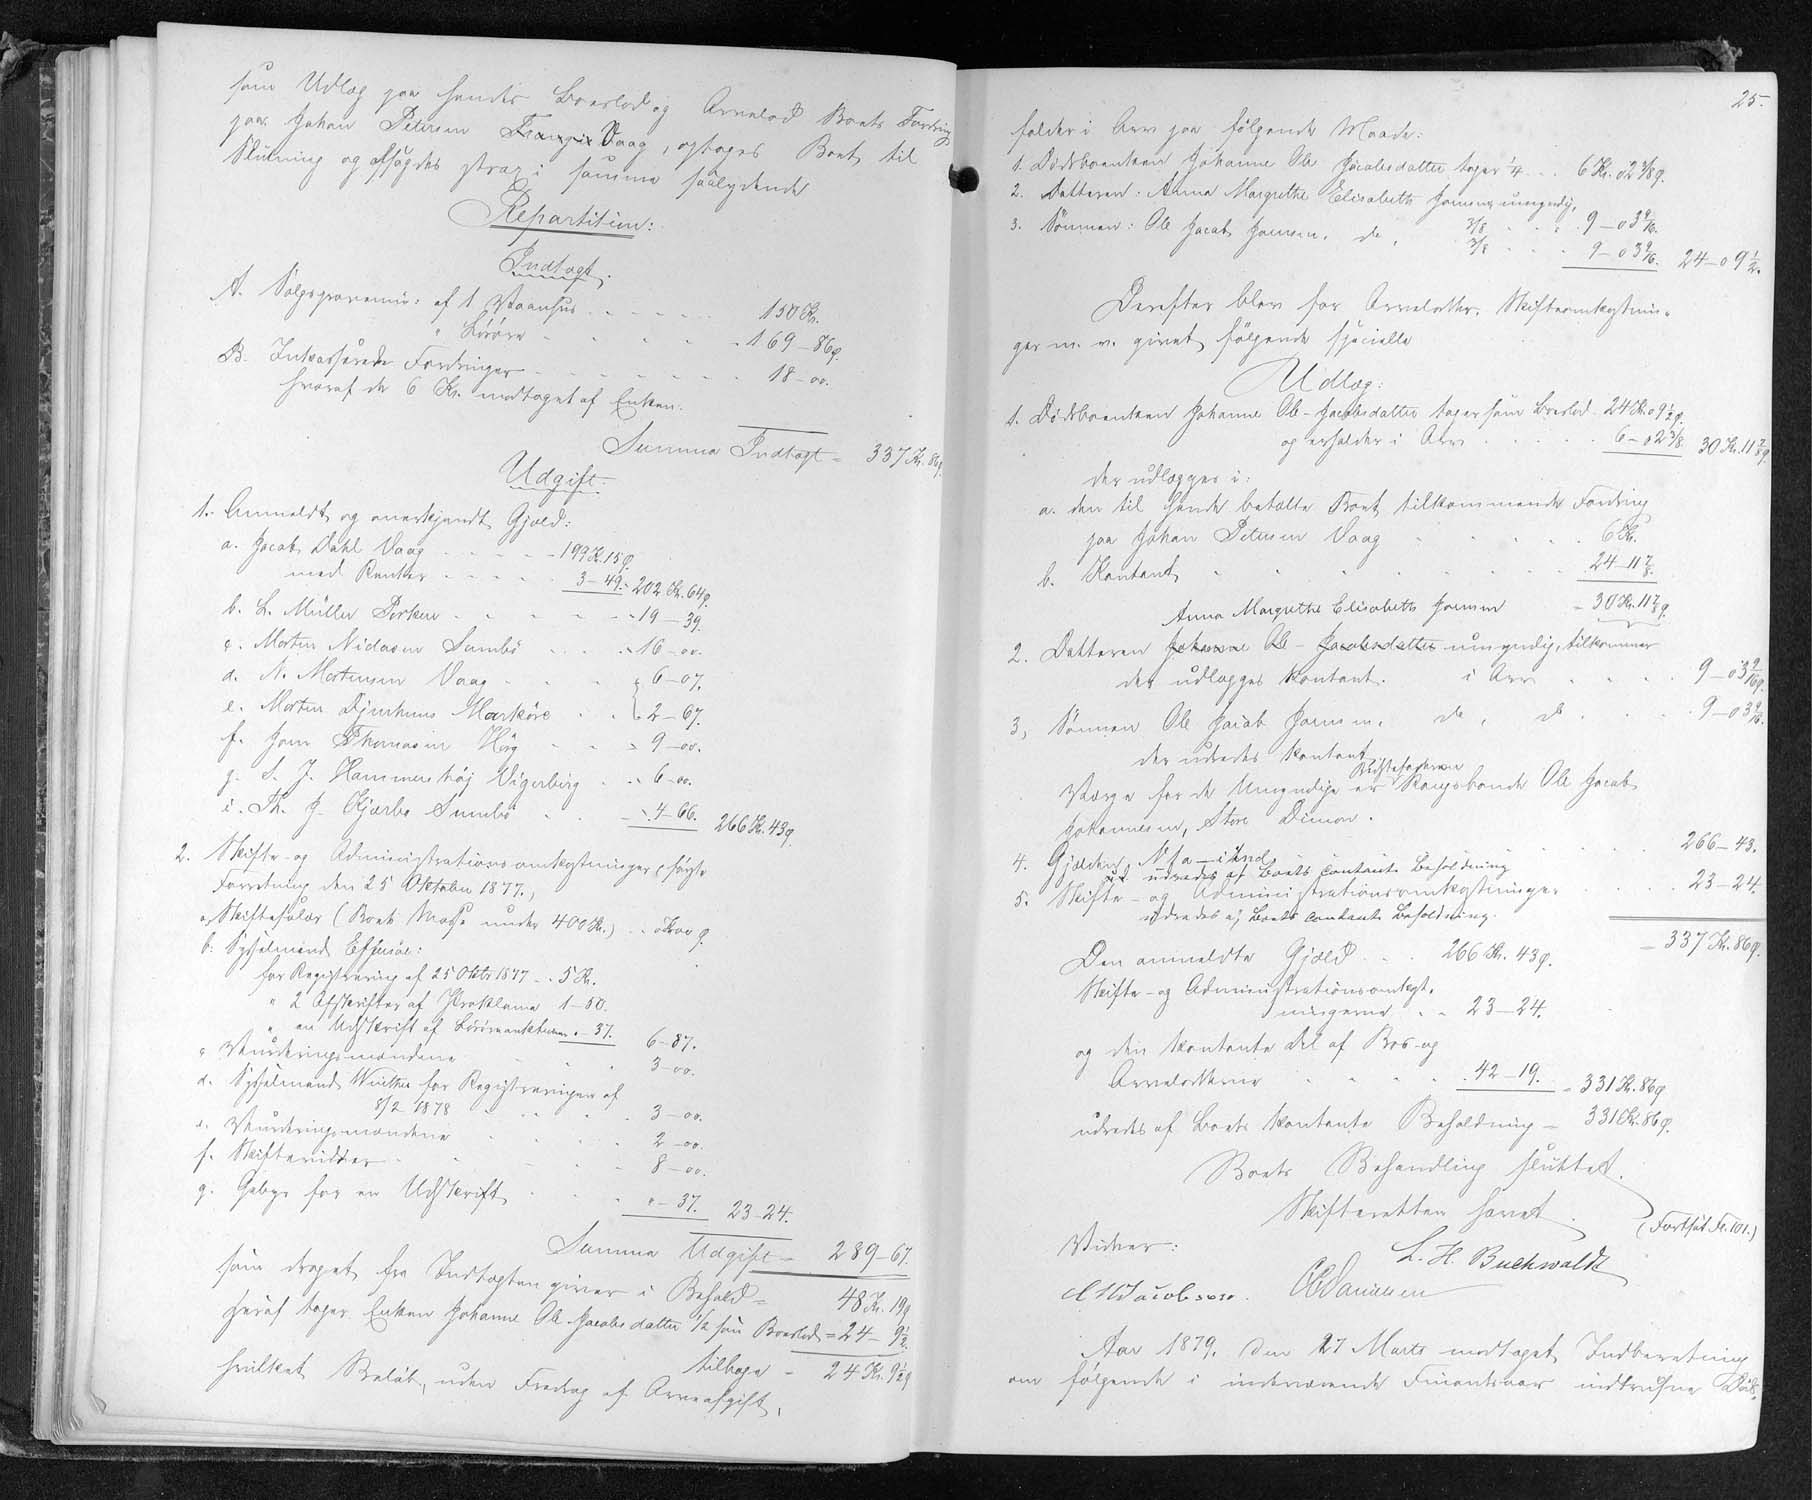 som Udlæg paa hendes Boeslod og Arvelod Boets Fordring
paa Johan Petersen Vaag, optoges Boet til
Slutning og afsagdes strax i samme saalydende
Repartition:
Indtægt.
A. Salgsprovenu: af 1 Vaanhus . . . . . 150 Kr.
" Løsøre . . . . . 169–86ø.
B. Inkasserede Fordringer . . . . . 18–00.
hvoraf de 6 Kr. modtaget af Enken.
Summa Indtægt = 337 Kr. 86ø.
Udgift.
1. Anmeldt og anerkjendt Gjæld:
a. Jacob Dahl Vaag . . . . 199 Kr. 15ø.
med Renter . . . . 3–49. = 202 Kr. 64ø.
b. L. Müller Porkere . . . . 19–39.
c. Morten Nidasen Sumbø . . . 16–00.
d. N. Mortensen Vaag . . . 6–07.
e. Morten Djurhuus Marköre . . 2–67.
f. Jens Thomasen Hög . . . 9–00.
g. S. J. Hammershøj Vigerberg . . 6–00.
i. Th. J. Kjærbo Sumbø . . . 4–66. 266 Kr. 43ø.
2. Skifte- og Administrationsomkostninger (første
Forretning den 25 Oktober 1877.,
a. Skiftesalær (Boets Masse under 400 Kr.) . . 0 Kr 00 ø.
b. Sysselmand Effersöe:
for Registrering af 25 Oktbr 1877 . . 5 Kr.
" 2 Afskrifter af Proklama 1–50.
" en Udskrift af Løsøreauktionen "–37. 6–87.
c. Vurderingsmændene . . . 3–00.
d. Sysselmand Winther for Registreringen af
8/2 1878 . . . . 3–00.
e. Vurderingsmændene . . . 2–00.
f. Skiftevidner . . . . 8–00.
g. Gebyr for en Udskrift . . . "–37. 23–24.
Summa Udgift = 289–67.
som draget fra Indtægten giver i Behold = 48 Kr. 19ø
heraf tager Enken Johanne Ole Jacobsdatter 1/2 som Boeslod = 24–9½.
tilbage = 24 Kr. 9½ø
hvilket Beløb, uden Fradrag af Arveafgift,
25.
falder i Arv paa følgende Maade:
1. Dødsboenken Johanne Ole Jacobsdatter tager 1/4 . . . 6 Kr. 02 3/8 ø.
2. Datteren: Anna Margrethe Elisabeth Joensen umyndig,
3/8 . . . 9–03 9/16.
3. Sønnen: Ole Jacob Joensen, do, 3/8 . . . 9–03 9/16. 24–09½.
Derefter blev for Arvelodder, Skifteomkostnin-
ger m. v. givet følgende specielle
Udlæg:
1. Dødsboenken Johanne Ole-Jacobsdatter tager som Boeslod 24 Kr. 09½ø.
og erholder i Arv . . . . . 6–02 3/8. 30 Kr. 11 7/8 ø.
der udlægges i:
a. den til hende betalte Boet tilkommende Fordring
paa Johan Petersen Vaag . . . . . 6 Kr.
b. Kontant . . . . . . . 24–11 7/8.
= 30 Kr. 11 7/8 ø.
Anna Margrethe Elisabeth Joensen
2. Datteren Johanne Ole-Jacobsdatter umyndig, tilkommer
i Arv . . . . 9–03 9/16 ø.
der udlægges Kontant.
3, Sønnen Ole Jacob Joensen, do, do . . . . 9–03 9/16.
der udredes kontant
Værge for de Umyndige er Kongsbonde Ole Jacob
Johannesen, Store Dimon.
4. Gjælden, N<u>o</u> a–i incl . . . . . 266–43.
udredes af Boets contante Beholdning
5. Skifte- og Administrationsomkostninger . . . . 23–24.
udredes af Boets contante Beholdning.
= 337 Kr. 86ø.
Den anmeldte Gjæld . . . 266 Kr. 43ø.
Skifte- og Administrationsomkost-
ningerne . . 23–24.
og den kontante del af Boes- og
Arvelodderne . . . . 42–19. = 331 Kr. 86ø
udredes af Boets kontante Beholdning = 331 Kr. 86ø.
Boets Behandling sluttet.
Skifteretten hævet.
(Fortsat Fo. 101.)
Vidner:
L. H. Buchwaldt
Jacobsen. Danielsen
Aar 1879. den 27 Marts modtaget Indberetning
om følgende i indeværende Finantsaar indtrufne Døds-